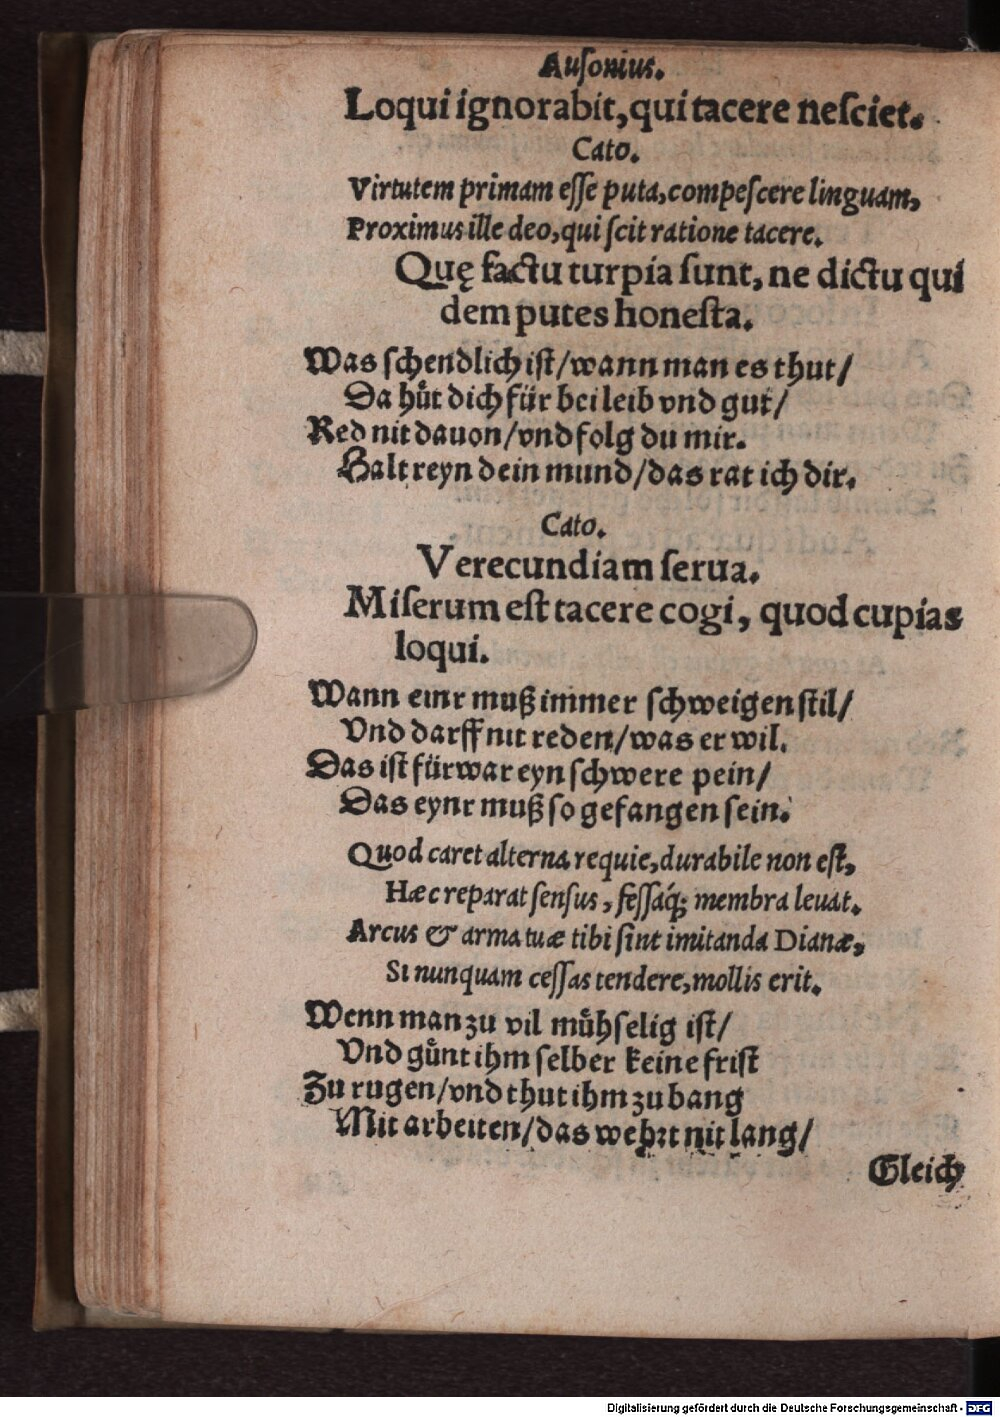 Auſonius.
Loqui ignorabit, qui tacere neſciet.
Cato.
Virtutem primam eſſe puta, compeſcere linguam,
Proximus ille deo, qui ſcit ratione tacere.
Quę factu turpia ſunt, ne dictu qui
dem putes honeſta.
Was ſchendlich iſt/wann man es thut/
Da huͤt dich für bei leib vnd gut/
Red nit dauon/vnd folg du mir.
Halt reyn dein mund/das rat ich dir.
Cato.
Verecundiam ſerua.
Miſerum eſt tacere cogi, quod cupias
loqui.
Wann einr muß immer ſchweigen ſtil/
Vnd darff nit reden/was er wil.
Das iſt fürwar eyn ſchwere pein/
Das eynr muß ſo gefangen ſein.
Quod caret alterna requie, durabile non eſt,
Hæc reparat ſenſus, feſſaq́; membra leuat.
Arcus & arma tuæ tibi ſint imitanda Dianæ,
Si nunquam ceſſas tendere, mollis erit.
Wenn man zu vil muͤhſelig iſt/
Vnd guͤnt ihm ſelber keine friſt
Zu rugen/vnd thut ihm zu bang
Mit arbeiten/das wehrt nit lang/
Gleich
Digitalisierung gefördert durch die Deutsche Forschungsgemeinschaft - DFG